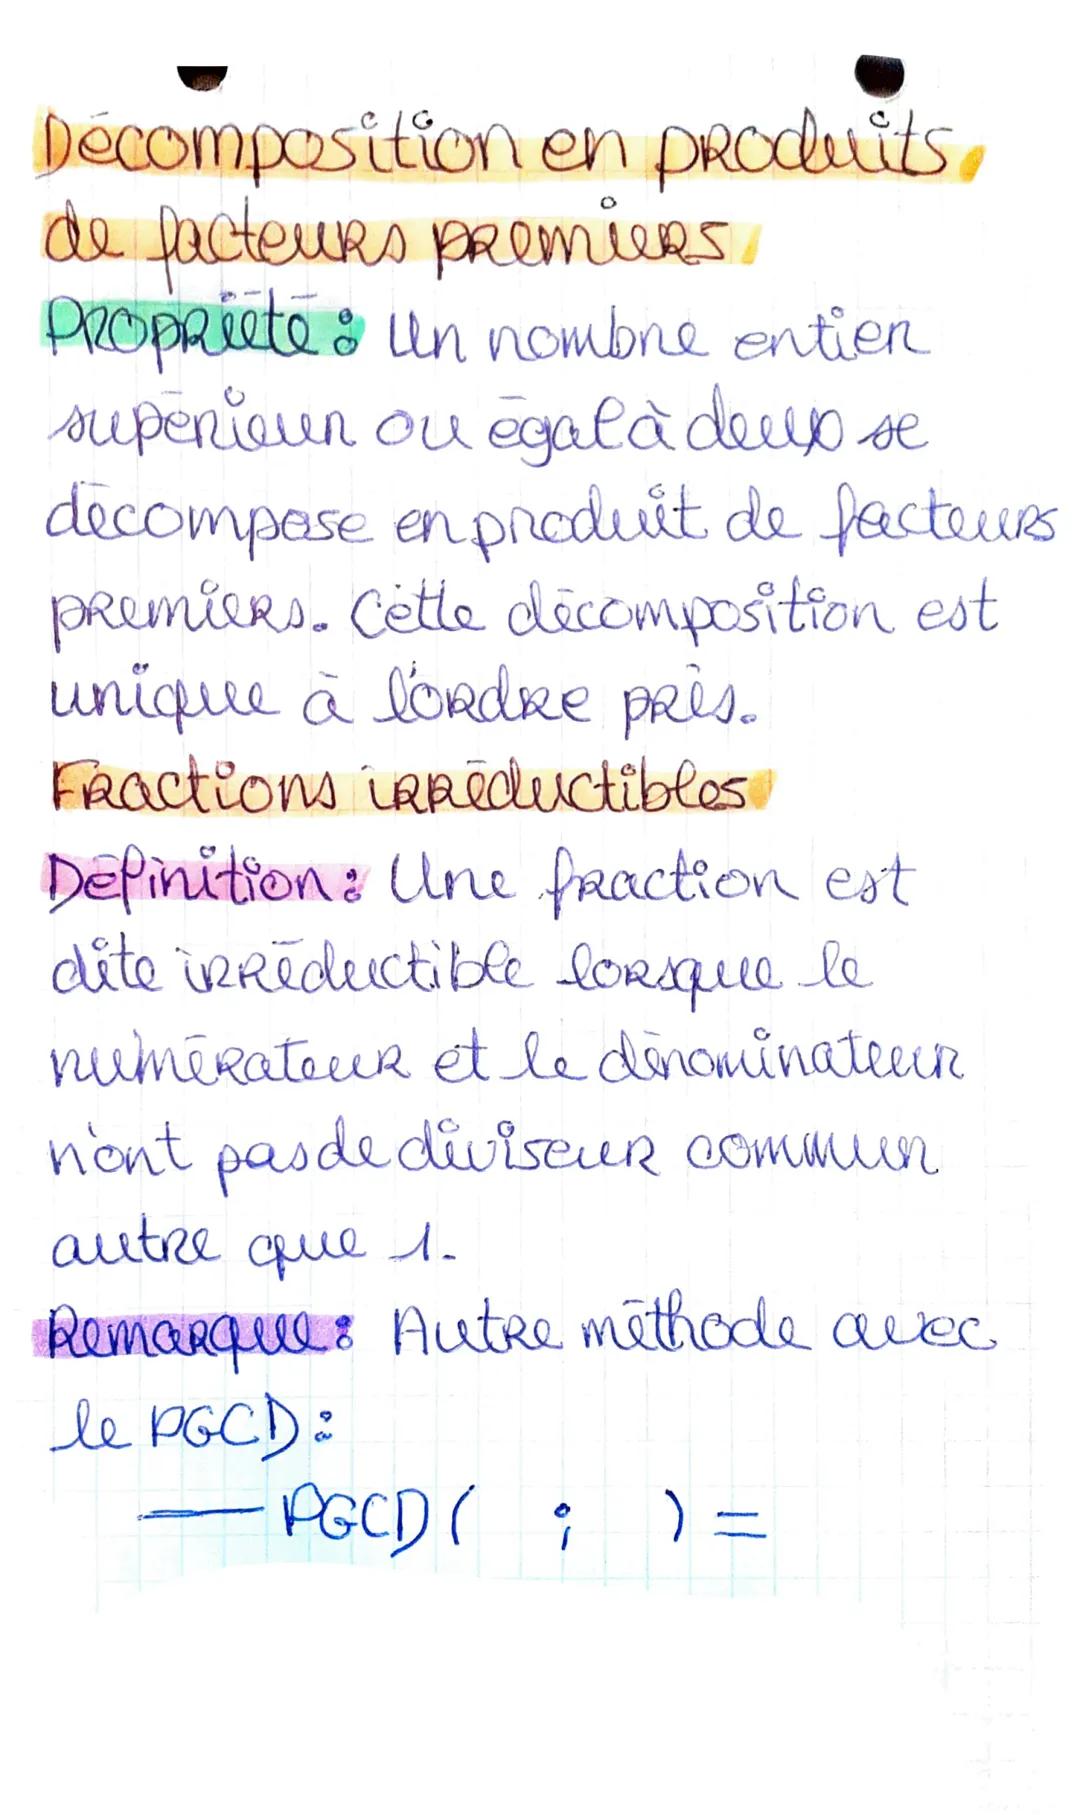 Décomposition en produits
de facteurs premiers
Propriété : Un nombre entier
supérieur ou égal à deux se
décompose en produit de facteurs
premiers. Cette décomposition est
unique à l'ordre près.
Fractions irréductibles
Définition : Une fraction est
dite irréductible lorsque le
numérateur et le dénominateur
n'ont pas de diviseur commun
autre que 1.
Remarque : Autre méthode avec
le PGCD :
— PGCD ( ; ) =